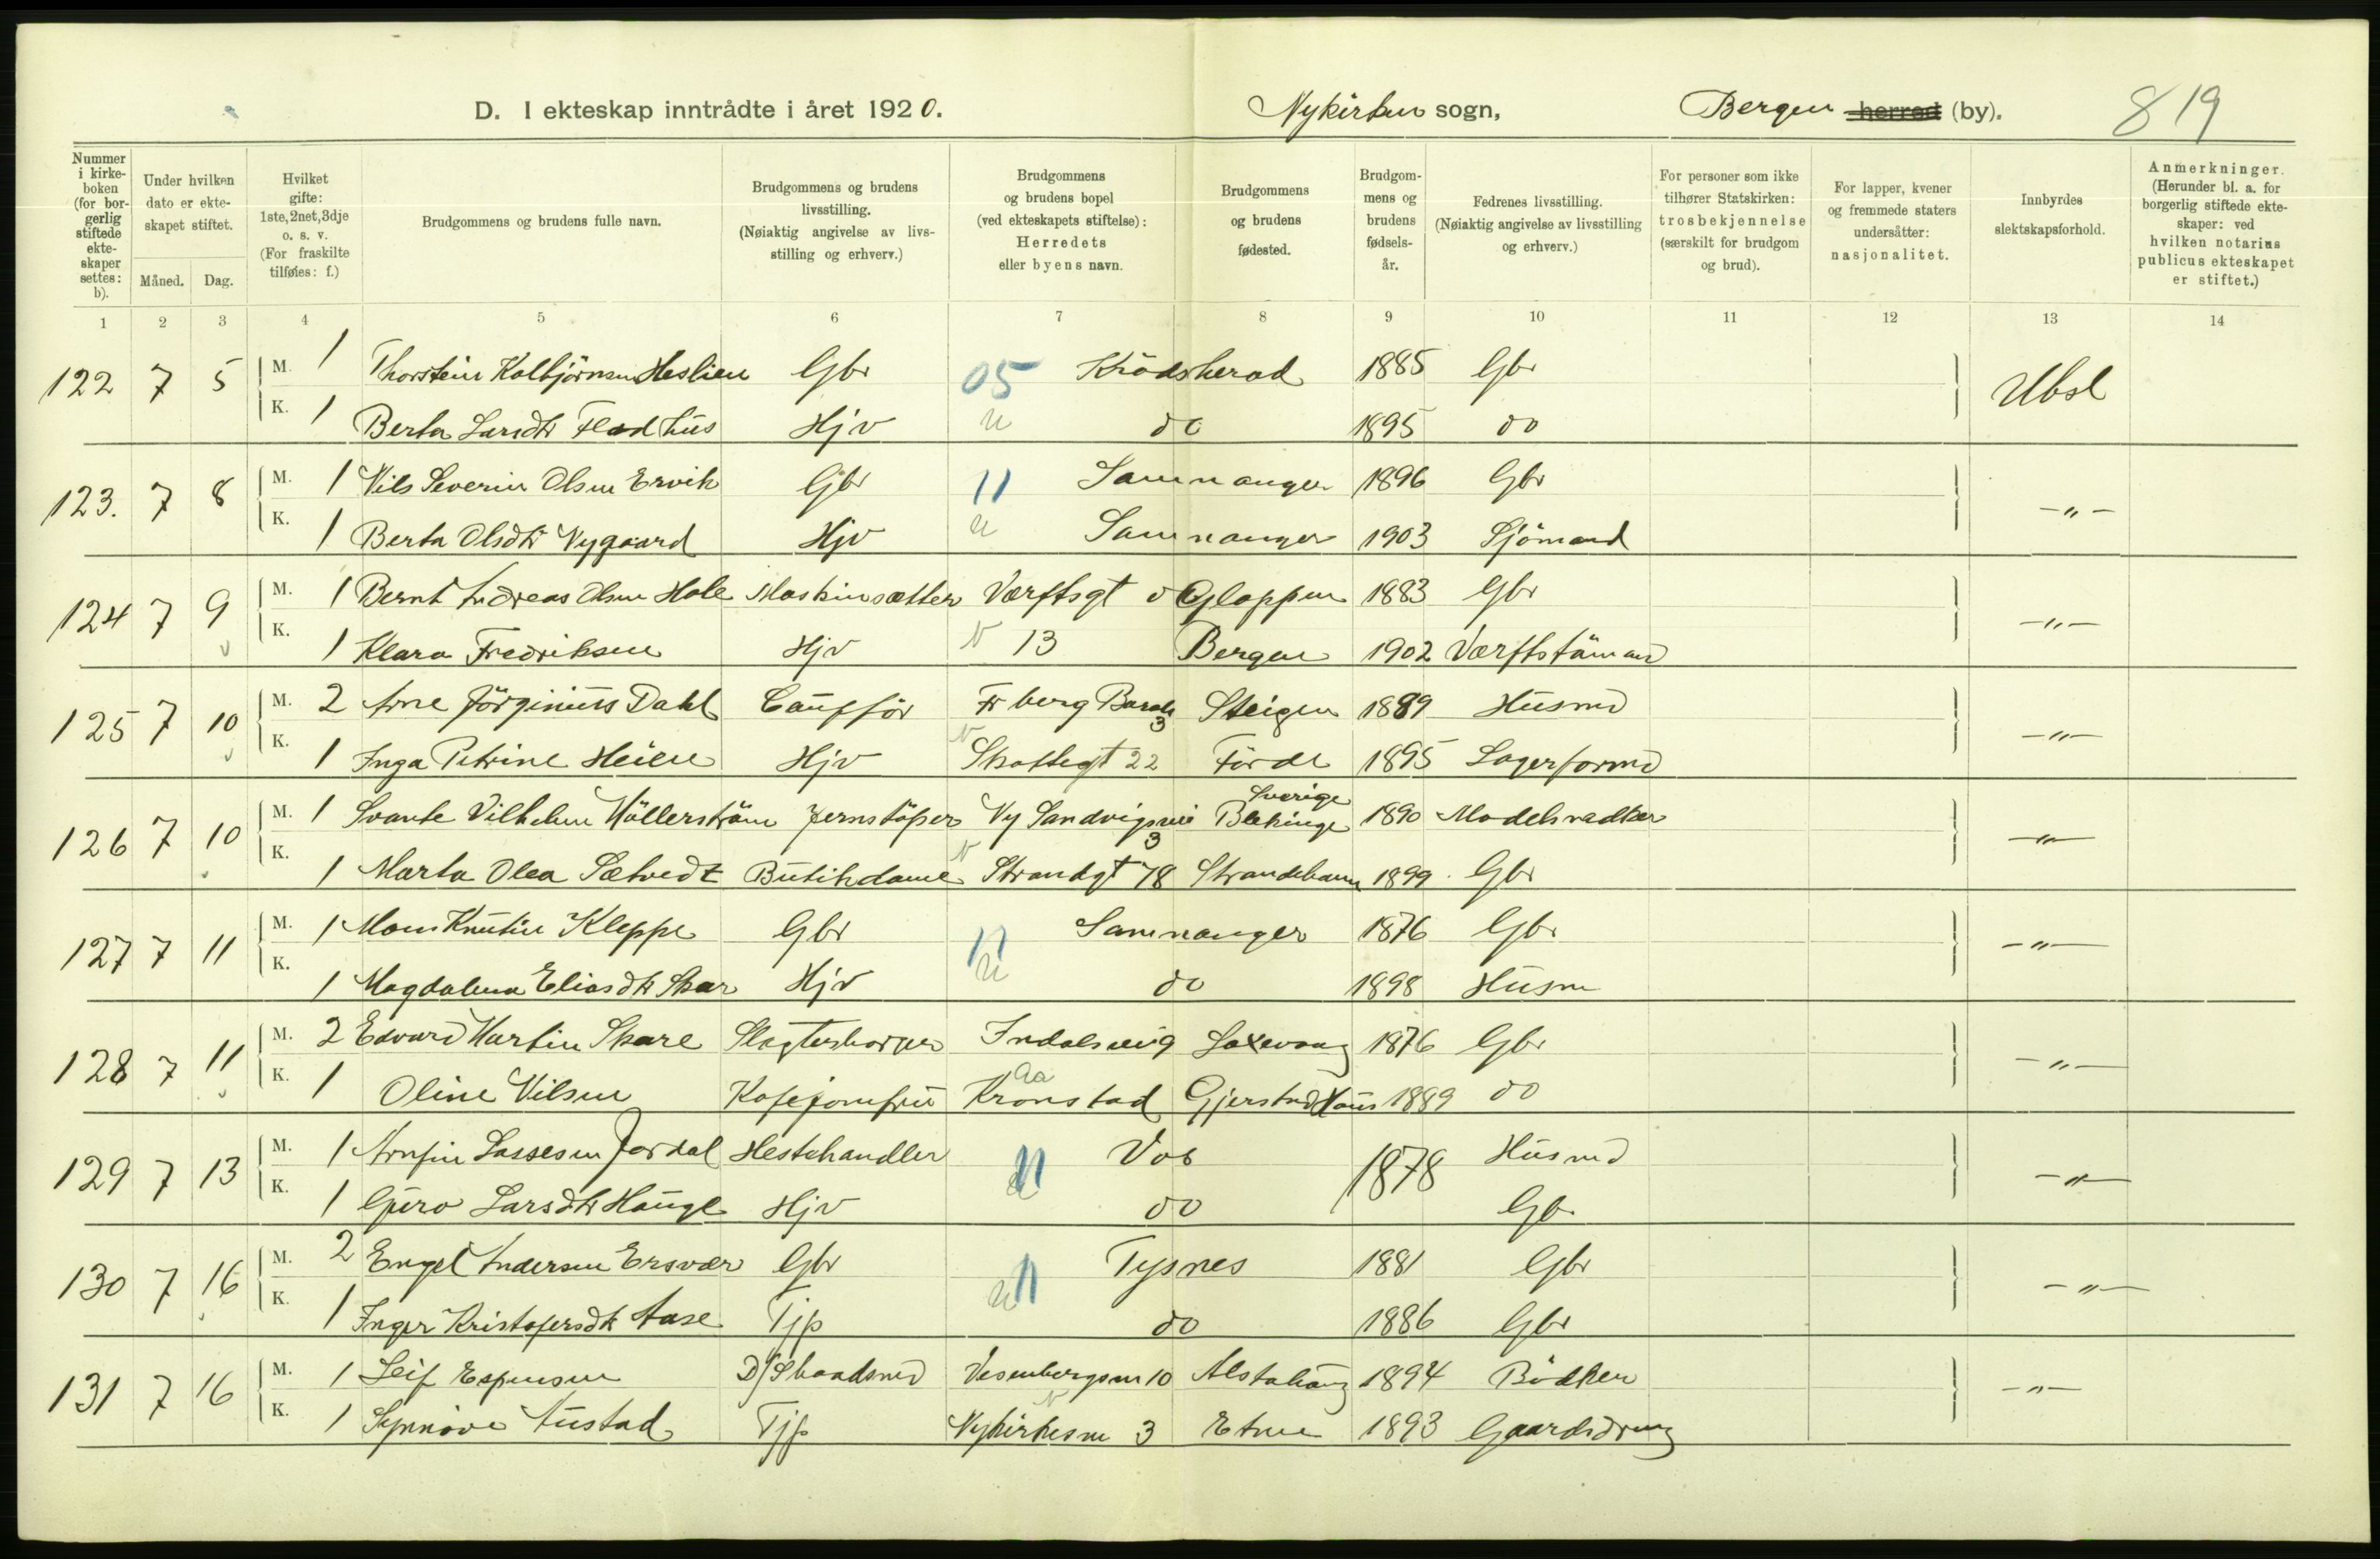 D. I ekteskap inntrådte i året 1920. Nykirken sogn, Bergen herred (by). 819
Nummer i kirkeboken (for borgerlig stiftede ekteskaper settes: b).
Under hvilken dato er ekteskapet stiftet.
Måned. Dag.
Hvilket gifte: 1ste, 2net, 3dje o. s. v. (For fraskilte tilføies: f.)
Brudgommens og brudens fulle navn.
Brudgommens og brudens livsstilling. (Nøiaktig angivelse av livsstilling og erhverv.)
Brudgommens og brudens bopel (ved ekteskapets stiftelse): Herredets eller byens navn.
Brudgommens og brudens fødested.
Brudgommens og brudens fødselsår.
Fedrenes livsstilling. (Nøiaktig angivelse av livsstilling og erhverv.)
For personer som ikke tilhører Statskirken: trosbekjennelse (særskilt for brudgom og brud).
For lapper, kvener og fremmede staters undersåtter: nasjonalitet.
Innbyrdes slektskapsforhold.
Anmerkninger. (Herunder bl. a. for borgerlig stiftede ekteskaper: ved hvilken notarius publicus ekteskapet er stiftet.)
1 2 3 4 5 6 7 8 9 10 11 12 13 14
122 7 5 M. 1 Thorstein Kolbjörnsen Heslien Gbr 05 Krödsherad 1885 Gbr Ubsl
K. 1 Berta Larsdtr Fladhus Hjv u do 1895 do
123. 7 8 M. 1 Nils Severin Olsen Ervik Gbr 11 Samnanger 1896 Gbr -"-
K. 1 Berta Olsdtr Nygaard Hjv u Samnanger 1903 Sjömand
124 7 9 M. 1 Bernt Andreas Olsen Hole Maskinsætter Værftsgt Gloppen 1883 Gbr -"-
K. 1 Klara Fredriksen Hjv 13 Bergen 1902 Værftstömmand
125 7 10 M. 2 Arne Jörginius Dahl Caufför 3 Steigen 1889 Husmd -"-
K. 1 Inga Petrine Heien Hjv Skottegt 22 Förde 1895 Lagerformd
126 7 10 M. 1 Svante Vilhelm Möllerström Jernstöper Ny Sandvigsvei 3 Sverige Blekinge 1890 Modelsnedker -"-
K. 1 Marta Olea Sætvedt Butikdame Strandgt 78 Strandebarm 1899 Gbr
127 7 11 M. 1 Mons Knutsen Kleppe Gbr 11 Samnanger 1876 Gbr -"-
K. 1 Magdalena Eliasdtr Skar Hjv u do 1898 Husm
128 7 11 M. 2 Edvard Martin Skare Slagterborger Indalsvei 9 Laxevaag 1876 Gbr -"-
K. 1 Oline Nilsen Kafejomfru Aa Kronstad Gjerstad Haus 1889 do
129 7 13 M. 1 Arnfin Lassesen Jordal Hestehandler 11 Vos 1878 Husmd -"-
K. 1 Guro Larsdtr Hauge Hjv do Gbr
130 7 16 M. 2 Engel Andersen Ersvær Gbr 11 Tysnes 1881 Gbr -"-
K. 1 Inger Kristofersdtr Aase Tjp u do 1886 Gbr
131 7 16 M. 1 Leif Espensen 10 Alstahaug 1894 Bödker -"-
K. 1 Synnöve Austad Tjp Nykirkesm 3 Etne 1893 Gaardsdreng